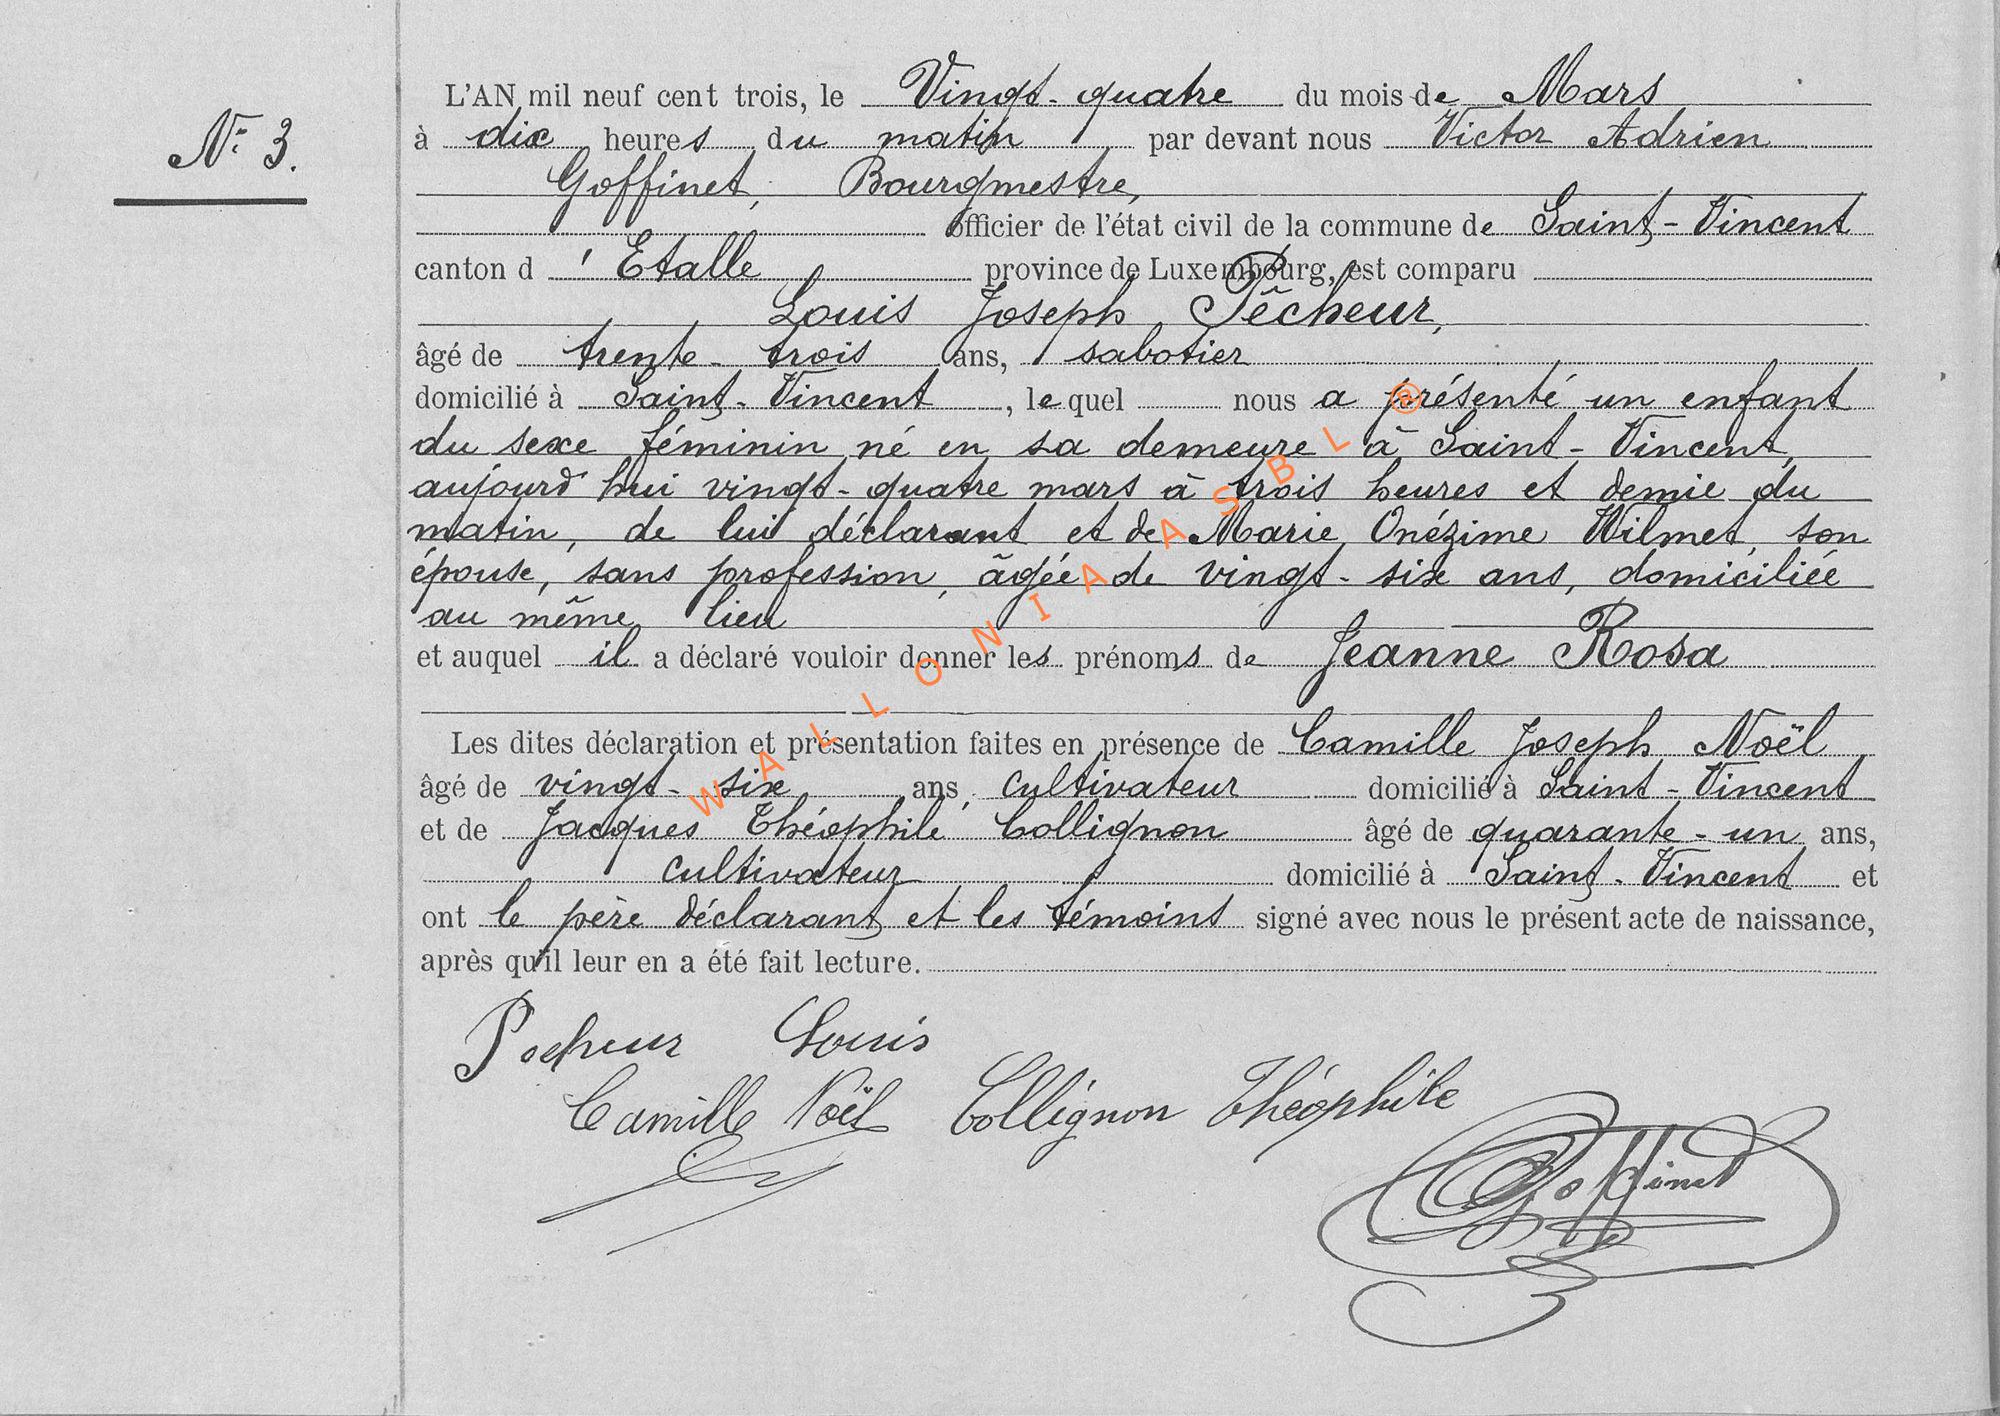 N° 3.
L'AN mil neuf cent trois, le Vingt-quatre du mois de Mars
à dix heures du matin par devant nous Victor Adrien
Goffinet, Bourgmestre,
officier de l'état civil de la commune de Saint-Vincent
canton d'Etalle province de Luxembourg, est comparu
Louis Joseph Pêcheur,
âgé de trente-trois ans, sabotier
domicilié à Saint-Vincent, lequel nous a présenté un enfant
du sexe féminin né en sa demeure à Saint-Vincent,
aujourd'hui vingt-quatre mars à trois heures et demie du
matin, de lui déclarant et de Marie Onézime Wilmet, son
épouse, sans profession, âgée de vingt-six ans, domiciliée
au même lieu
et auquel il a déclaré vouloir donner les prénoms de Jeanne Rosa
Les dites déclaration et présentation faites en présence de Camille Joseph Noël
âgé de vingt-six ans, cultivateur domicilié à Saint-Vincent
et de Jacques Théophile Collignon âgé de quarante-un ans,
cultivateur domicilié à Saint-Vincent et
ont le père déclarant et les témoins signé avec nous le présent acte de naissance,
après qu'il leur en a été fait lecture.
Pecheur Louis
Camille Noël Collignon Théophile
Goffinet
WALLONIA ASBL ®